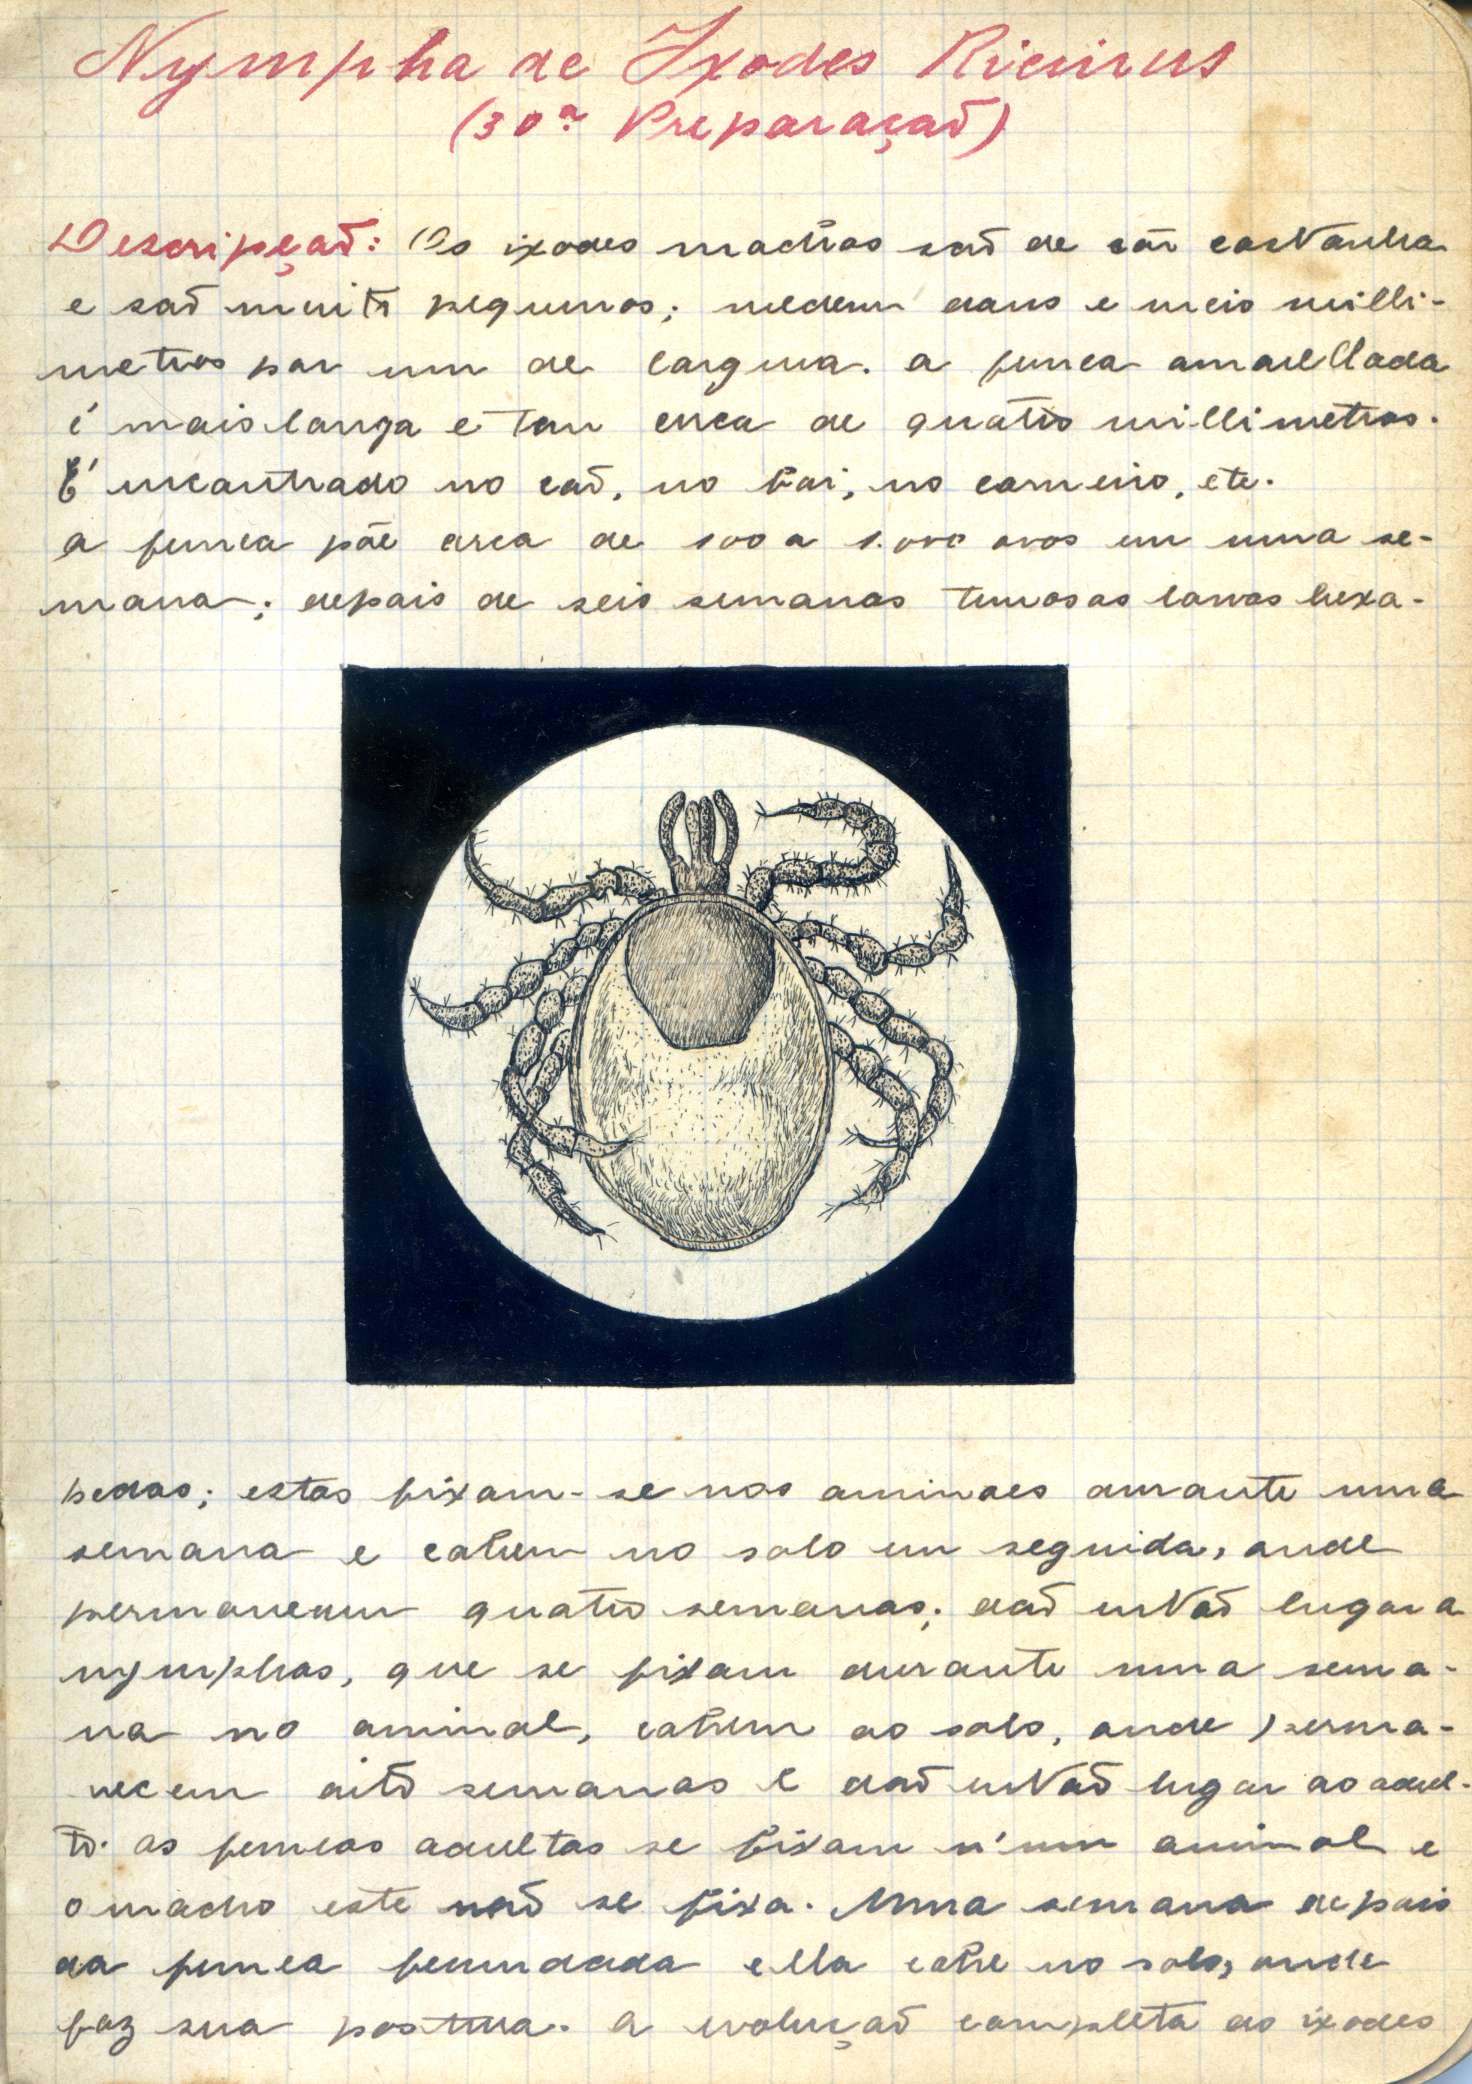 Nympha de Ixodes Ricinus
(30ª Preparação)
Descripção: Os ixodes machos são de côr castanha
e são muito pequenos; medem dous e meio milli-
metros por um de largura. a femea amarellada
é mais larga e tem cerca de quatro millimetros.
É encontrado no cão, no boi, no carneiro, etc.
a femea põe cerca de 100 a 1.000 ovos em uma se-
mana; depois de seis semanas temos as larvas hexa-
pedas; estas fixam-se nos animaes durante uma
semana e cahem no solo em seguida, onde
permanecem quatro semanas; dão então lugar a
nymphas, que se fixam durante uma sema-
na no animal, cahem ao solo, onde perma-
necem oito semanas e dão então lugar ao adul-
to. as femeas adultas se fixam n'um animal e
o macho este não se fixa. Uma semana depois
da femea fecundada ella cahe no solo, onde
faz sua postura. a evolução completa do ixodes